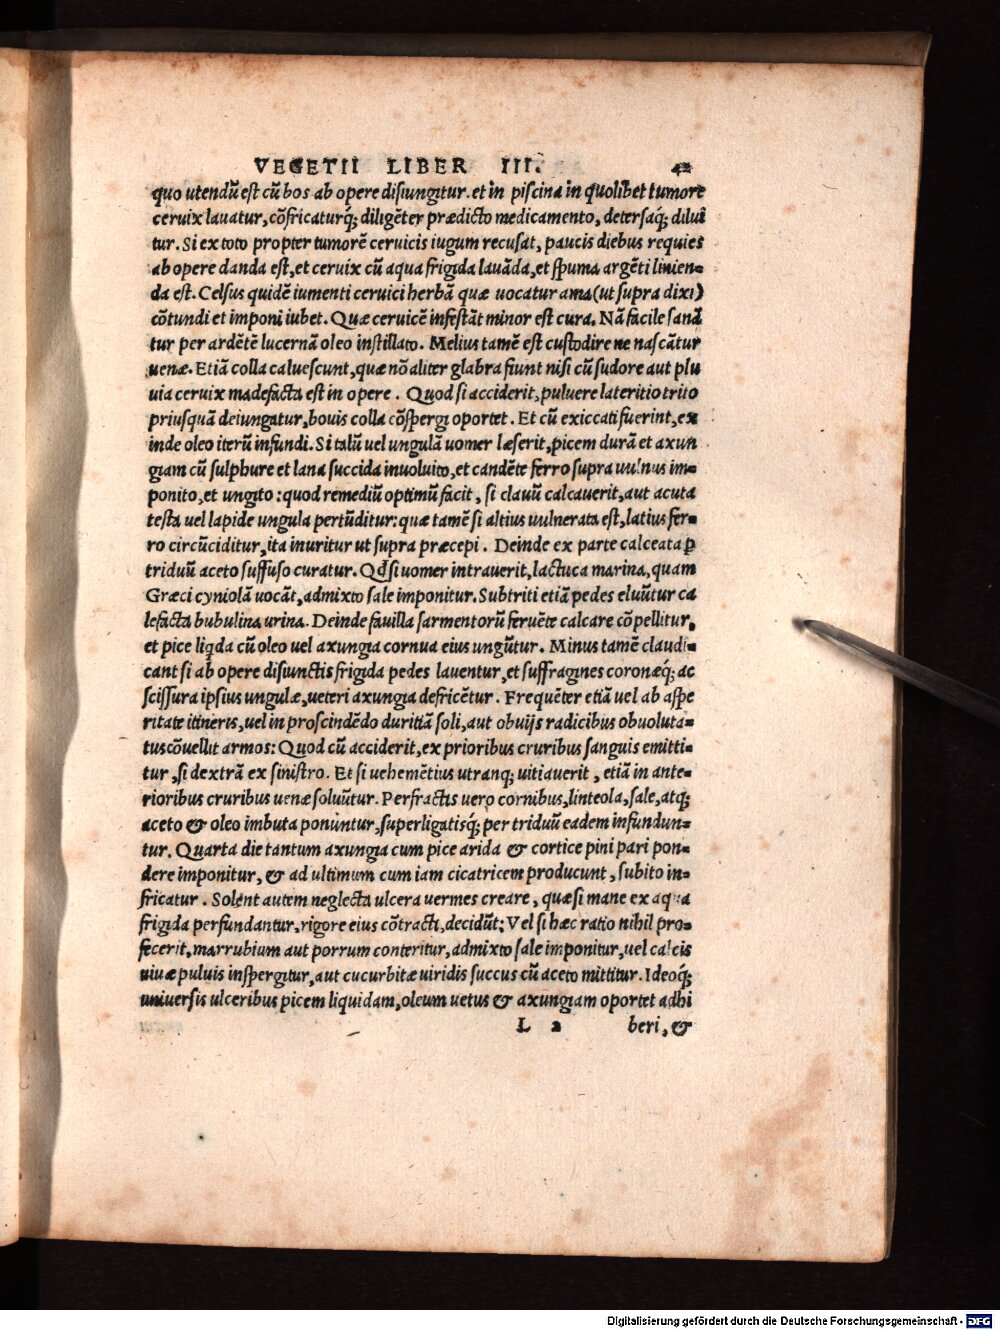 VEGETII LIBER III. 42
quo utendũ est cũ bos ab opere disiungitur. et in piscina in quolibet tumore
ceruix lauatur, cõfricaturq́; diligẽter prædicto medicamento, detersaq́; dilui
tur. Si ex toto propter tumorẽ ceruicis iugum recusat, paucis diebus requies
ab opere danda est, et ceruix cũ aqua frigida lauãda, et spuma argẽti linien=
da est. Celsus quidẽ iumenti ceruici herbã quæ uocatur ama (ut supra dixi)
cõtundi et imponi iubet. Quæ ceruicẽ infestãt minor est cura. Nã facile sanã
tur per ardẽtẽ lucernã oleo instillato. Melius tamẽ est custodire ne nascãtur
uenæ. Etiã colla caluescunt, quæ nõ aliter glabra fiunt nisi cũ sudore aut plu
uia ceruix madefacta est in opere. Quod si acciderit, puluere lateritio trito
priusquã deiungatur, bouis colla cõspergi oportet. Et cũ exiccati fuerint, ex
inde oleo iterũ infundi. Si talũ uel ungulã uomer læserit, picem durã et axun
giam cũ sulphure et lana succida inuoluito, et candẽte ferro supra uulnus im=
ponito, et ungito: quod remediũ optimũ facit, si clauũ calcauerit, aut acuta
testa uel lapide ungula pertũditur: quæ tamẽ si altius uulnerata est, latius fer=
ro circũciditur, ita inuritur ut supra præcepi. Deinde ex parte calceata ꝑ
triduũ aceto suffuso curatur. Qđ si uomer intrauerit, lactuca marina, quam
Græci cyniolã uocãt, admixto sale imponitur. Subtriti etiã pedes eluũtur ca
lefacta bubulina urina. Deinde fauilla sarmentorũ feruẽte calcare cõpellitur,
et pice liqda cũ oleo uel axungia cornua eius ungũtur. Minus tamẽ claudi=
cant si ab opere disiunctis frigida pedes lauentur, et suffragines coronæq́; ac
scissura ipsius ungulæ, ueteri axungia defricẽtur. Frequẽter etiã uel ab aspe
ritate itineris, uel in proscindẽdo duritiã soli, aut obuijs radicibus obuoluta=
tus cõuellit armos: Quod cũ acciderit, ex prioribus cruribus sanguis emitti=
tur, si dextrã ex sinistro. Et si uehemẽtius utranq; uitiauerit, etiã in ante=
rioribus cruribus uenæ soluũtur. Perfractis uero cornibus, linteola, sale, atq;
aceto & oleo imbuta ponuntur, superligatisq́; per triduũ eadem infundun=
tur. Quarta die tantum axungia cum pice arida & cortice pini pari pon=
dere imponitur, & ad ultimum cum iam cicatricem producunt, subito in=
fricatur. Solent autem neglecta ulcera uermes creare, quæ si mane ex aqua
frigida perfundantur, rigore eius cõtracti, decidũt: Vel si hæc ratio nihil pro=
fecerit, marrubium aut porrum conteritur, admixto sale imponitur, uel calcis
uiuæ puluis inspergitur, aut cucurbitæ uiridis succus cũ aceto mittitur. Ideoq́;
uniuersis ulceribus picem liquidam, oleum uetus & axungiam oportet adhi
L 2 beri, &
Digitalisierung gefördert durch die Deutsche Forschungsgemeinschaft - DFG